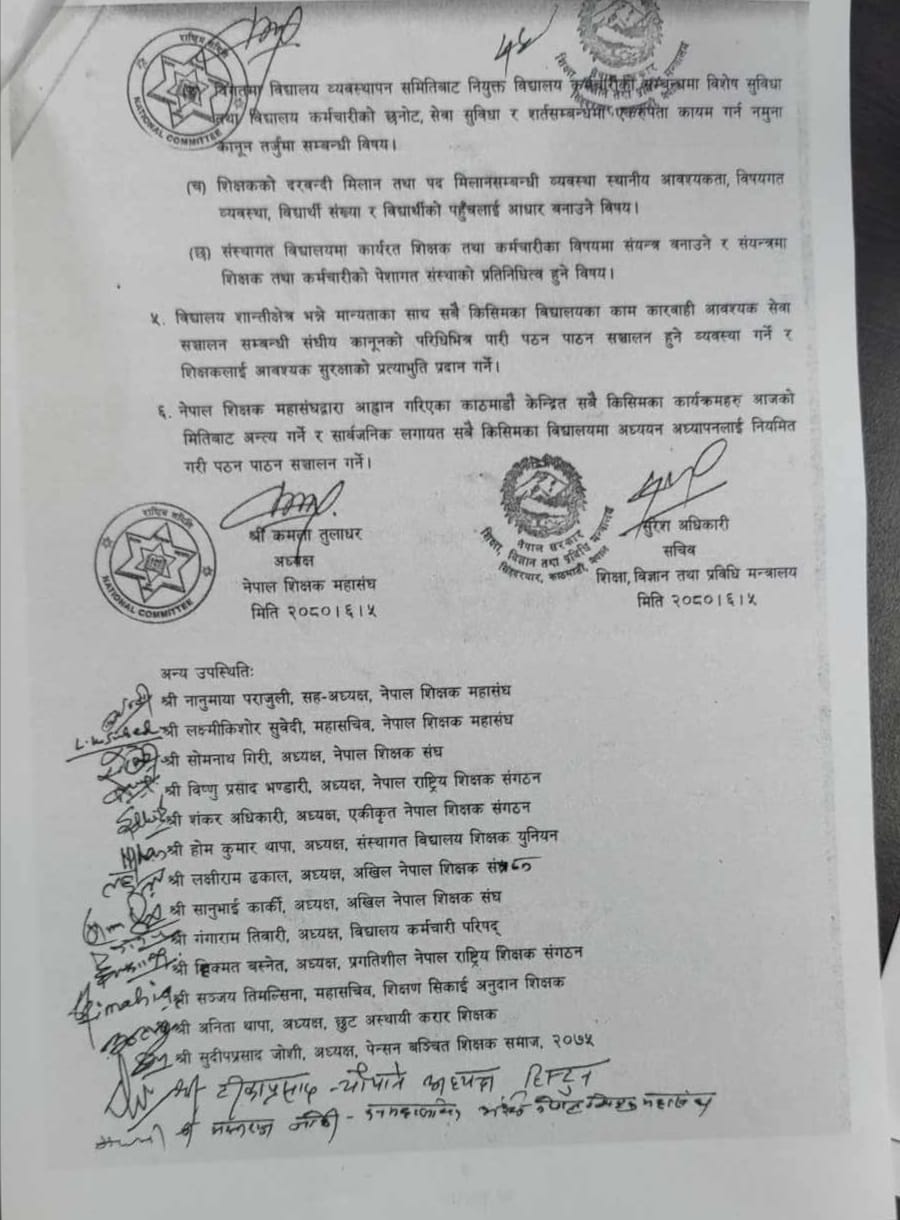 राष्ट्रिय समिति
NATIONAL COMMITTEE
विगतमा विद्यालय व्यवस्थापन समितिबाट नियुक्त विद्यालय कर्मचारीको सम्बन्धमा विशेष सुविधा
तथा विद्यालय कर्मचारीको छनोट, सेवा सुविधा र शर्तसम्बन्धमा एकरुपता कायम गर्न नमुना
कानून तर्जुमा सम्बन्धी विषय।
(च) शिक्षकको दरबन्दी मिलान तथा पद मिलानसम्बन्धी व्यवस्था स्थानीय आवश्यकता, विषयगत
व्यवस्था, विद्यार्थी संख्या र विद्यार्थीको पहुँचलाई आधार बनाउने विषय।
(छ) संस्थागत विद्यालयमा कार्यरत शिक्षक तथा कर्मचारीका विषयमा संयन्त्र बनाउने र संयन्त्रमा
शिक्षक तथा कर्मचारीको पेशागत संस्थाको प्रतिनिधित्व हुने विषय।
५. विद्यालय शान्तीक्षेत्र भन्ने मान्यताका साथ सबै किसिमका विद्यालयका काम कारवाही आवश्यक सेवा
सञ्चालन सम्बन्धी संघीय कानूनको परिधिभित्र पारी पठन पाठन सञ्चालन हुने व्यवस्था गर्ने र
शिक्षकलाई आवश्यक सुरक्षाको प्रत्याभुति प्रदान गर्ने।
६. नेपाल शिक्षक महासंघद्वारा आह्वान गरिएका काठमाडौं केन्द्रित सबै किसिमका कार्यक्रमहरु आजको
मितिबाट अन्त्य गर्ने र सार्वजनिक लगायत सबै किसिमका विद्यालयमा अध्ययन अध्यापनलाई नियमित
गरी पठन पाठन सञ्चालन गर्ने।
राष्ट्रिय समिति
NATIONAL COMMITTEE
श्री कमला तुलाधर
अध्यक्ष
नेपाल शिक्षक महासंघ
मिति २०८०।६।५
नेपाल सरकार
शिक्षा, विज्ञान तथा प्रविधि मन्त्रालय
सिंहदरबार, काठमाडौं, नेपाल
सुरेश अधिकारी
सचिव
शिक्षा, विज्ञान तथा प्रविधि मन्त्रालय
मिति २०८०।६।५
अन्य उपस्थितिः
श्री नानुमाया पराजुली, सह-अध्यक्ष, नेपाल शिक्षक महासंघ
श्री लक्ष्मीकिशोर सुवेदी, महासचिव, नेपाल शिक्षक महासंघ
श्री सोमनाथ गिरी, अध्यक्ष, नेपाल शिक्षक संघ
श्री विष्णु प्रसाद भण्डारी, अध्यक्ष, नेपाल राष्ट्रिय शिक्षक संगठन
श्री शंकर अधिकारी, अध्यक्ष, एकीकृत नेपाल शिक्षक संगठन
श्री होम कुमार थापा, अध्यक्ष, संस्थागत विद्यालय शिक्षक युनियन
श्री लक्षीराम ढकाल, अध्यक्ष, अखिल नेपाल शिक्षक
श्री सानुभाई कार्की, अध्यक्ष, अखिल नेपाल शिक्षक संघ
श्री गंगाराम तिवारी, अध्यक्ष, विद्यालय कर्मचारी परिषद्
श्री हिक्मत बस्नेत, अध्यक्ष, प्रगतिशील नेपाल राष्ट्रिय शिक्षक संगठन
श्री सञ्जय तिमल्सिना, महासचिव, शिक्षण सिकाई अनुदान शिक्षक
श्री अनिता थापा, अध्यक्ष, छुट अस्थायी करार शिक्षक
श्री सुदीपप्रसाद जोशी, अध्यक्ष, पेन्सन बञ्चित शिक्षक समाज, २०७५
श्री टीकाप्रसाद अध्यक्ष
श्री महासंघ